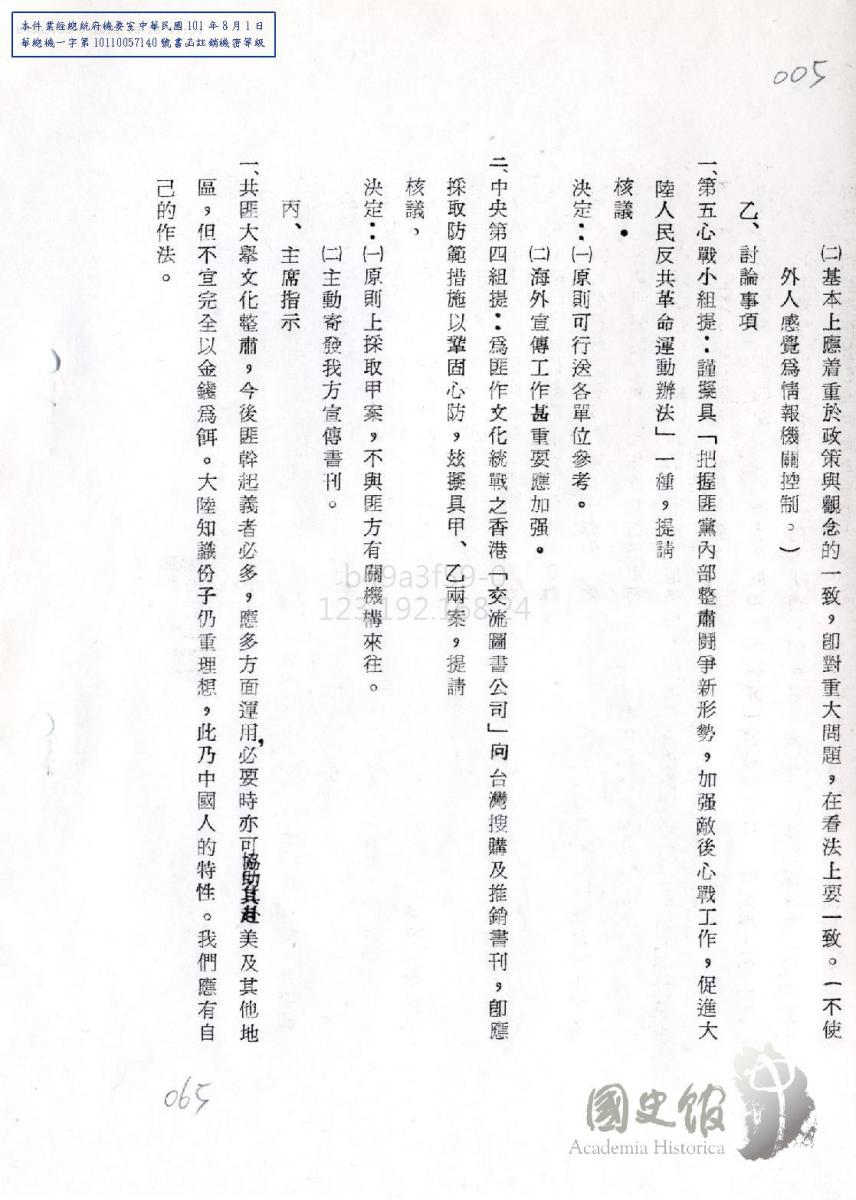 本件業經總統府機要室中華民國101年8月1日
華總機一字第10110057140號書函註銷機密等級
005
㈡基本上應着重於政策與觀念的一致，卽對重大問題，在看法上要一致。（不使
外人感覺爲情報機關控制。）
乙、討論事項
一、第五心戰小組提：謹擬具「把握匪黨內部整肅鬪爭新形勢，加强敵後心戰工作，促進大
陸人民反共革命運動辦法」一種，提請
核議。
決定：㈠原則可行送各單位參考。
㈡海外宣傳工作甚重要應加强。
二、中央第四組提：爲匪作文化統戰之香港「交流圖書公司」向台灣搜購及推銷書刊，卽應
採取防範措施以鞏固心防，茲擬具甲、乙兩案，提請
核議，
決定：㈠原則上採取甲案，不與匪方有關機構來往。
㈡主動寄發我方宣傳書刊。
丙、主席指示
一、共匪大擧文化整肅，今後匪幹起義者必多，應多方面運用，必要時亦可協助其赴美及其他地
區，但不宜完全以金錢爲餌。大陸知識份子仍重理想，此乃中國人的特性。我們應有自
己的作法。
065
國史館
Academia Historica